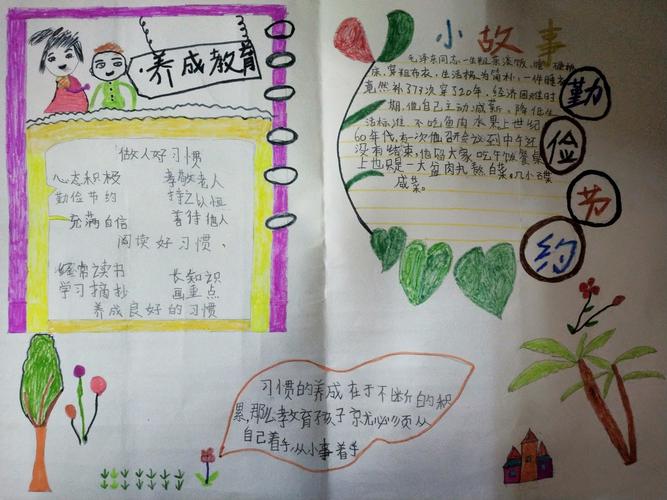 养成教育
做人好习惯
心态积极 孝敬老人
勤俭节约 持之以恒
充满自信 善待他人
阅读好习惯、
经常读书 长知识
学习摘抄 画重点
养成良好的习惯
小故事
毛泽东同志一生粗茶淡饭、睡硬板
床、穿粗布衣，生活极为简朴，一件睡衣
竟然补了73次穿了20年。经济困难时
期，他自己主动减薪、降低生
活标准，不吃鱼肉水果上世纪
60年代，有一次他召开会议到中午还
没有结束，他留大家吃午饭餐桌
上也只是一大盆肉丸熬白菜。几小碟
咸菜。
勤
俭
节
约
习惯的养成在于不断的积
累，那么教育孩子就必须从
自己着手，从小事着手